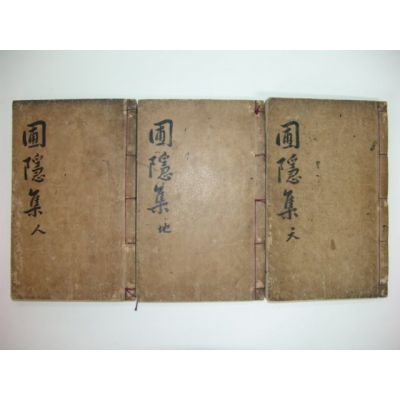 圃隱集 天
圃隱集 地
圃隱集 人